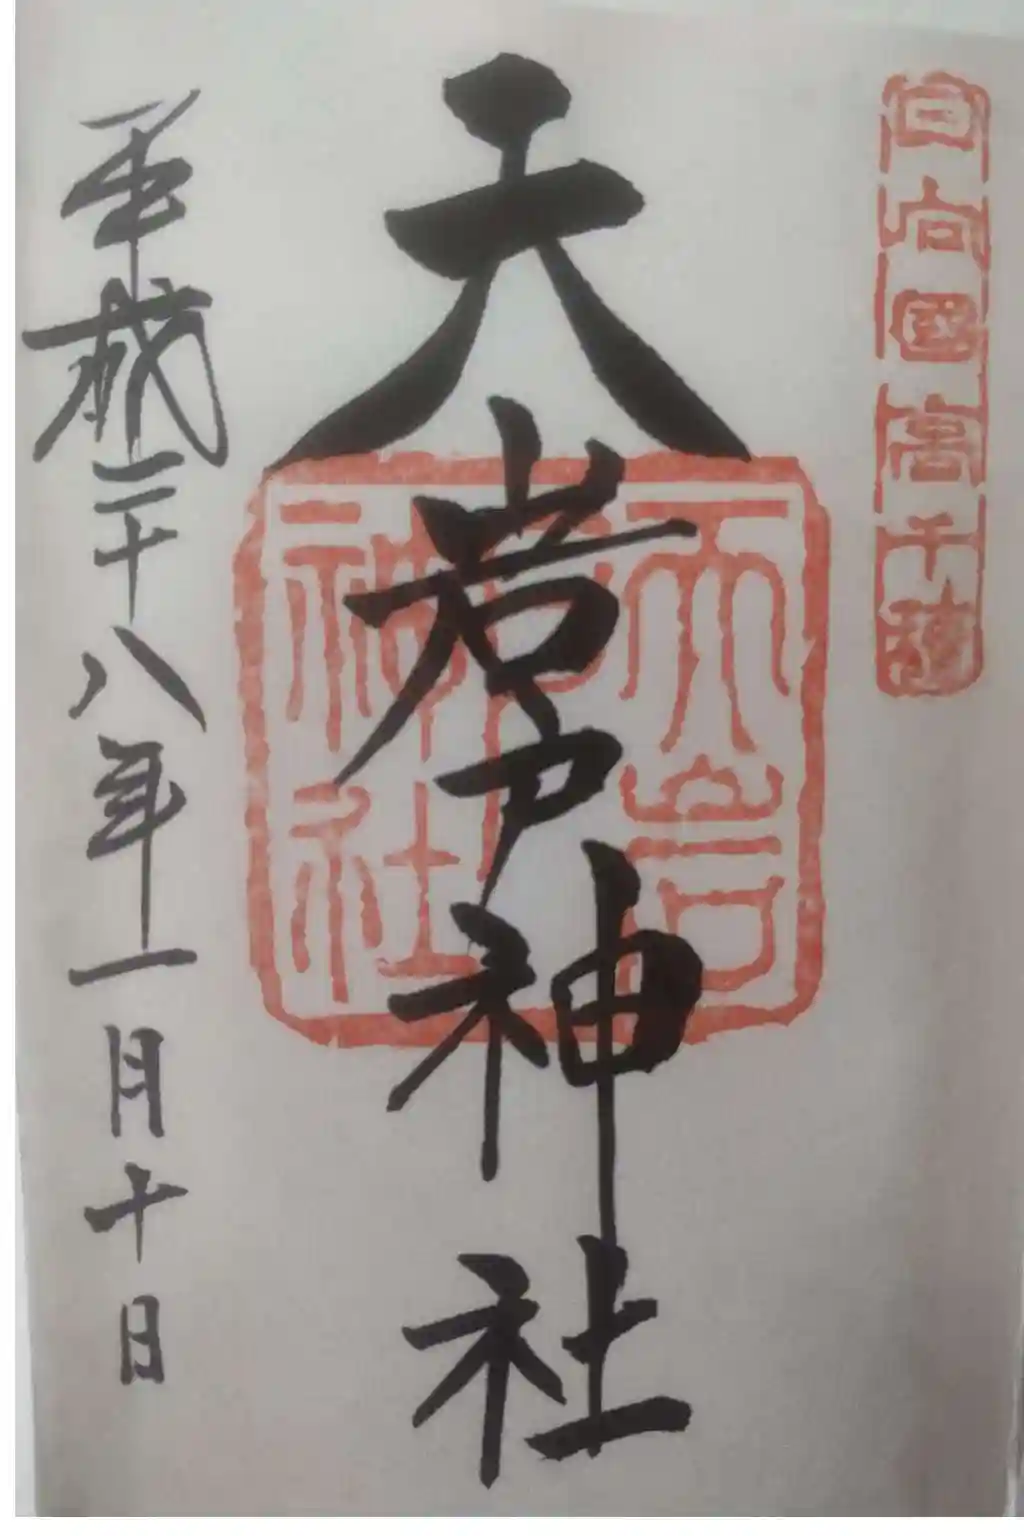 日向國高千穂
天岩戸神社
天岩戸神社
平成二十八年一月十日